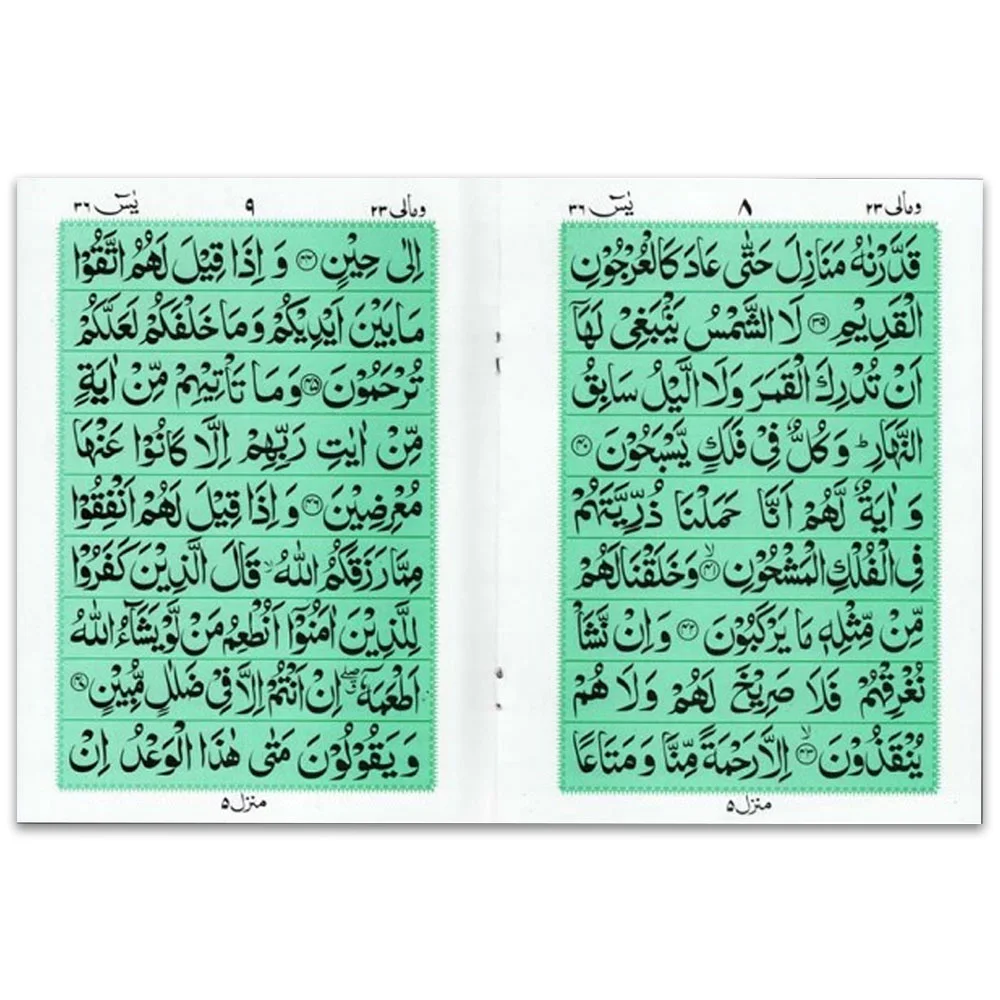 ومالی ۲۳ ۸ یٰسٓ ۳۶
قَدَّرْنٰهُ مَنَازِلَ حَتّٰى عَادَ كَالْعُرْجُوْنِ
الْقَدِيْمِ ۳۹ لَا الشَّمْسُ يَنْۢبَغِيْ لَهَاۤ
اَنْ تُدْرِكَ الْقَمَرَ وَلَا الَّيْلُ سَابِقُ
النَّهَارِ ؕ وَ كُلٌّ فِيْ فَلَكٍ يَّسْبَحُوْنَ ۴۰
وَ اٰيَةٌ لَّهُمْ اَنَّا حَمَلْنَا ذُرِّيَّتَهُمْ
فِي الْفُلْكِ الْمَشْحُوْنِ ۙ۴۱ وَخَلَقْنَا لَهُمْ
مِّنْ مِّثْلِهٖ مَا يَرْكَبُوْنَ ۴۲ وَاِنْ نَّشَاْ
نُغْرِقْهُمْ فَلَا صَرِيْخَ لَهُمْ وَلَا هُمْ
يُنْقَذُوْنَ ۙ۴۳ اِلَّا رَحْمَةً مِّنَّا وَ مَتَاعًا
منزل ۵
ومالی ۲۳ ۹ یٰسٓ ۳۶
اِلٰى حِيْنٍ ۴۴ وَ اِذَا قِيْلَ لَهُمُ اتَّقُوْا
مَا بَيْنَ اَيْدِيْكُمْ وَمَا خَلْفَكُمْ لَعَلَّكُمْ
تُرْحَمُوْنَ ۴۵ وَمَا تَاْتِيْهِمْ مِّنْ اٰيَةٍ
مِّنْ اٰيٰتِ رَبِّهِمْ اِلَّا كَانُوْا عَنْهَا
مُعْرِضِيْنَ ۴۶ وَ اِذَا قِيْلَ لَهُمْ اَنْفِقُوْا
مِمَّا رَزَقَكُمُ اللّٰهُ ۙ قَالَ الَّذِيْنَ كَفَرُوْا
لِلَّذِيْنَ اٰمَنُوْۤا اَنُطْعِمُ مَنْ لَّوْ يَشَآءُ اللّٰهُ
اَطْعَمَهٗۤ ۖ اِنْ اَنْتُمْ اِلَّا فِيْ ضَلٰلٍ مُّبِيْنٍ ۴۷
وَ يَقُوْلُوْنَ مَتٰى هٰذَا الْوَعْدُ اِنْ
منزل ۵